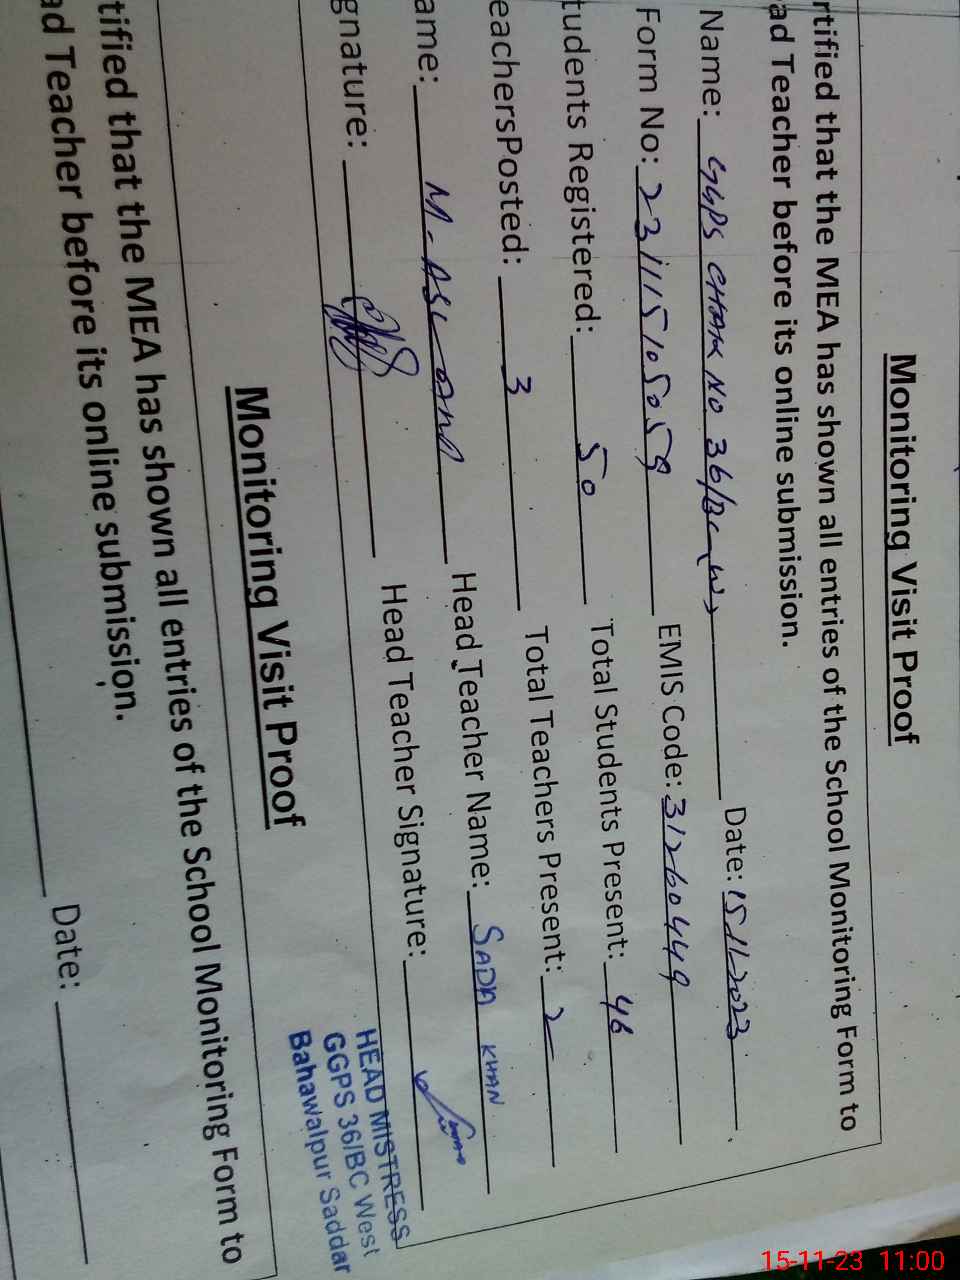 Monitoring Visit Proof
rtified that the MEA has shown all entries of the School Monitoring Form to
ad Teacher before its online submission.
Name: GGPS CHAK NO 36/BC (W) Date: 15.11.2023
Form No: 231115105059 EMIS Code: 31260449
tudents Registered: 50 Total Students Present: 46
eachersPosted: 3 Total Teachers Present: 2
ame: M. Head Teacher Name: SADA KHAN
gnature: Head Teacher Signature:
HEAD MISTRESS
GGPS 36/BC West
Bahawalpur Saddar
Monitoring Visit Proof
tified that the MEA has shown all entries of the School Monitoring Form to
ad Teacher before its online submission.
Date:
15-11-23 11:00